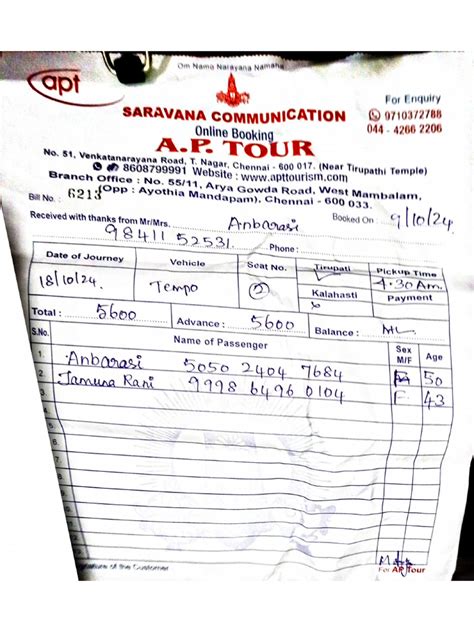 Om Namo Narayana Namaha
apt
SARAVANA COMMUNICATION
Online Booking
A.P. TOUR
For Enquiry
9710372788
044 - 4266 2206
No. 51, Venkatanarayana Road, T. Nagar, Chennai - 600 017. (Near Tirupathi Temple)
8608799991 Website : www.apttourism.com
Branch Office : No. 55/11, Arya Gowda Road, West Mambalam,
(Opp : Ayothia Mandapam), Chennai - 600 033.
Bill No. : 6213
Received with thanks from Mr/Mrs. Anbarasi Booked On : 9/10/24
98411 52531 Phone :
Date of Journey Vehicle Seat No. Tirupati Pickup Time
18/10/24 Tempo 2 4.30 Am.
Kalahasti Payment
Total : 5600 Advance : 5600 Balance :
S.No. Name of Passenger Sex M/F Age
1. Anbarasi 5050 2404 7684 50
2. Jamuna Rani 9998 6496 0104 F 43
3.
Signature of the Customer For AP Tour